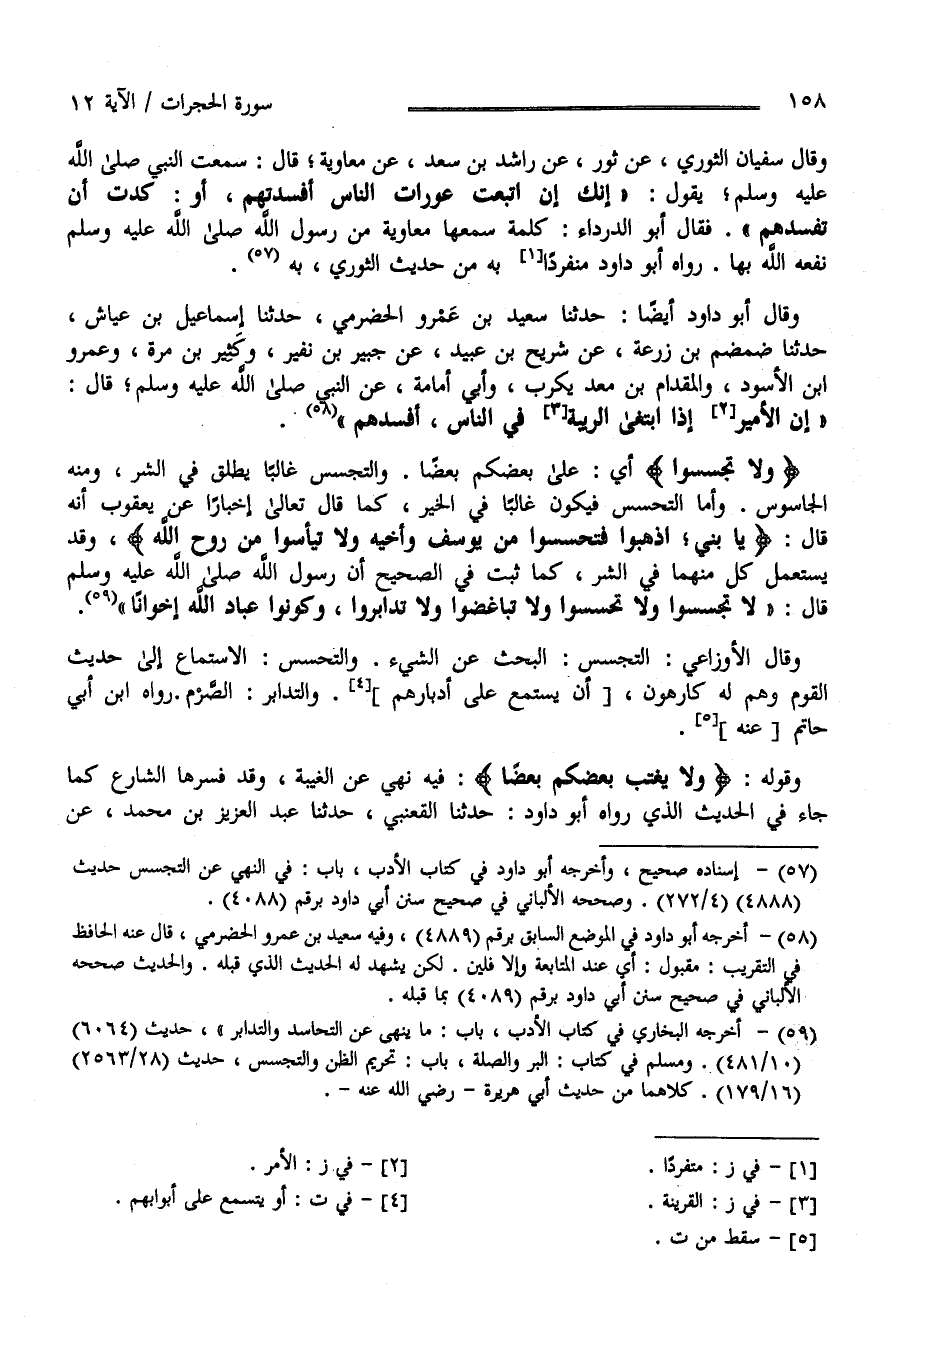 ١٥٨ سورة الحجرات / الآية ١٢
وقال سفيان الثوري ، عن ثور ، عن راشد بن سعد ، عن معاوية ؛ قال : سمعت النبي صلىٰ اللَّه
عليه وسلم ؛ يقول : « إنك إن اتبعت عورات الناس أفسدتهم ، أو : كدت أن
تفسدهم » . فقال أبو الدرداء : كلمة سمعها معاوية من رسول اللَّه صلىٰ اللَّه عليه وسلم
نفعه اللَّه بها . رواه أبو داود منفردًا[١] به من حديث الثوري ، به (٥٧) .
وقال أبو داود أيضًا : حدثنا سعيد بن عَمْرو الحضرمي ، حدثنا إسماعيل بن عياش ،
حدثنا ضمضم بن زرعة ، عن شريح بن عبيد ، عن جبير بن نفير ، وكَثِير بن مرة ، وعمرو
ابن الأسود ، والمقدام بن معد يكرب ، وأبي أمامة ، عن النبي صلىٰ اللَّه عليه وسلم ؛ قال :
« إن الأمير[٢] إذا ابتغىٰ الريبة[٣] في الناس ، أفسدهم »(٥٨) .
﴿ ولا تجسسوا ﴾ أي : علىٰ بعضكم بعضًا . والتجسس غالبًا يطلق في الشر ، ومنه
الجاسوس . وأما التحسس فيكون غالبًا في الخير ، كما قال تعالىٰ إخبارًا عن يعقوب أنه
قال : ﴿ يا بني ؛ اذهبوا فتحسسوا من يوسف وأخيه ولا تيأسوا من روح اللَّه ﴾ ، وقد
يستعمل كل منهما في الشر ، كما ثبت في الصحيح أن رسول اللَّه صلىٰ اللَّه عليه وسلم
قال : « لا تجسسوا ولا تحسسوا ولا تباغضوا ولا تدابروا ، وكونوا عباد اللَّه إخوانًا »(٥٩).
وقال الأوزاعي : التجسس : البحث عن الشيء . والتحسس : الاستماع إلىٰ حديث
القوم وهم له كارهون ، [ أن يستمع على أدبارهم ][٤] . والتدابر : الصَّرْم .رواه ابن أبي
حاتم [ عنه ][٥] .
وقوله : ﴿ ولا يغتب بعضكم بعضًا ﴾ : فيه نهي عن الغيبة ، وقد فسرها الشارع كما
جاء في الحديث الذي رواه أبو داود : حدثنا القعنبي ، حدثنا عبد العزيز بن محمد ، عن
(٥٧) – إسناده صحيح ، وأخرجه أبو داود في كتاب الأدب ، باب : في النهي عن التجسس حديث
(٤٨٨٨) (٢٧٢/٤) . وصححه الألباني في صحيح سنن أبي داود برقم (٤٠٨٨) .
(٥٨) – أخرجه أبو داود في الموضع السابق برقم (٤٨٨٩) ، وفيه سعيد بن عمرو الحضرمي ، قال عنه الحافظ
في التقريب : مقبول : أي عند المتابعة وإلا فلين . لكن يشهد له الحديث الذي قبله . والحديث صححه
الألباني في صحيح سنن أبي داود برقم (٤٠٨٩) بما قبله .
(٥٩) – أخرجه البخاري في كتاب الأدب ، باب : ما ينهى عن التحاسد والتدابر » ، حديث (٦٠٦٤)
(٤٨١/١٠) . ومسلم في كتاب : البر والصلة ، باب : تحريم الظن والتجسس ، حديث (٢٥٦٣/٢٨)
(١٧٩/١٦) . كلاهما من حديث أبي هريرة – رضي الله عنه – .
[١] – في ز : متفردًا . [٢] – في ز : الأمر .
[٣] – في ز : القرينة . [٤] – في ت : أو يتسمع على أبوابهم .
[٥] – سقط من ت .